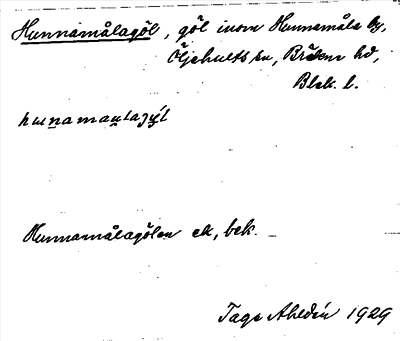 Hunnamålagöl, göl inom Hunnamåla by,
Öljehults sn, Bräkne hd,
Blek. l.
Hunnamålagölen ek, bek.
Tage Ahldén 1929